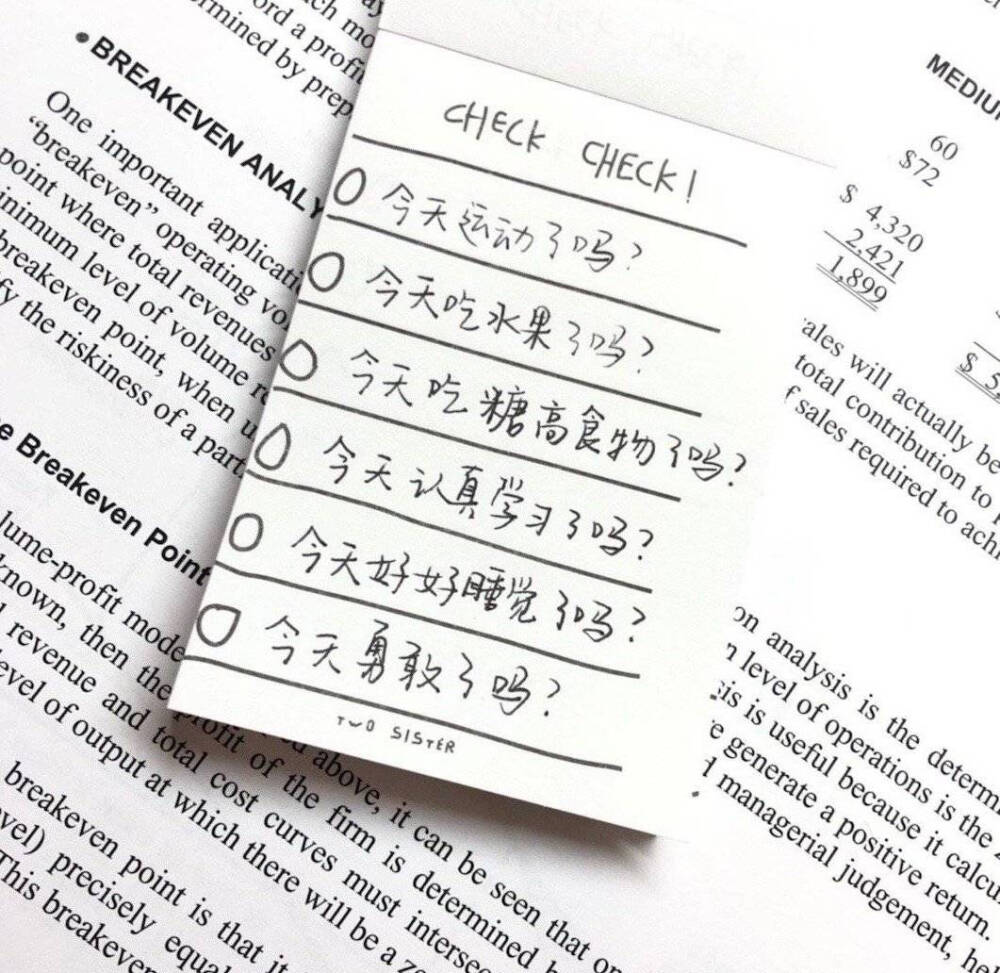 ch may
ord a profit
rmined by prep
• BREAKEVEN ANALY
One important applicati
“breakeven” operating vo
point where total revenues
inimum level of volume re
breakeven point, when u
fy the riskiness of a part
e Breakeven Point
lume-profit mode
known, then the
revenue and total cost curves must interse
evel of output at which there will be a ze
breakeven point is that it
vel) precisely equa
This breakeven
above, it can be seen that
profit of the firm is determined b
CHECK CHECK!
今天运动了吗?
今天吃水果了吗?
今天吃糖高食物了吗?
今天认真学习了吗?
今天好好睡觉了吗?
今天勇敢了吗?
TWO SISTER
MEDIU
60
$72
$ 4,320
2,421
1,899
$ 5
ales will actually be
total contribution to
f sales required to achi
on analysis is the determ
n level of operations is the
is is useful because it calcu
e generate a positive return.
d managerial judgement, he